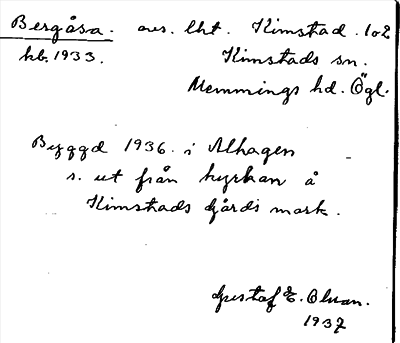 Bergåsa. avs. lht. Kimstad 1o2
hb. 1933. Kimstads sn.
Memmings hd. Ögl.
Byggd 1936. i Alhagen
s. ut från kyrkan å
Kimstads gårds mark.
Gustaf E. Olsson.
1937